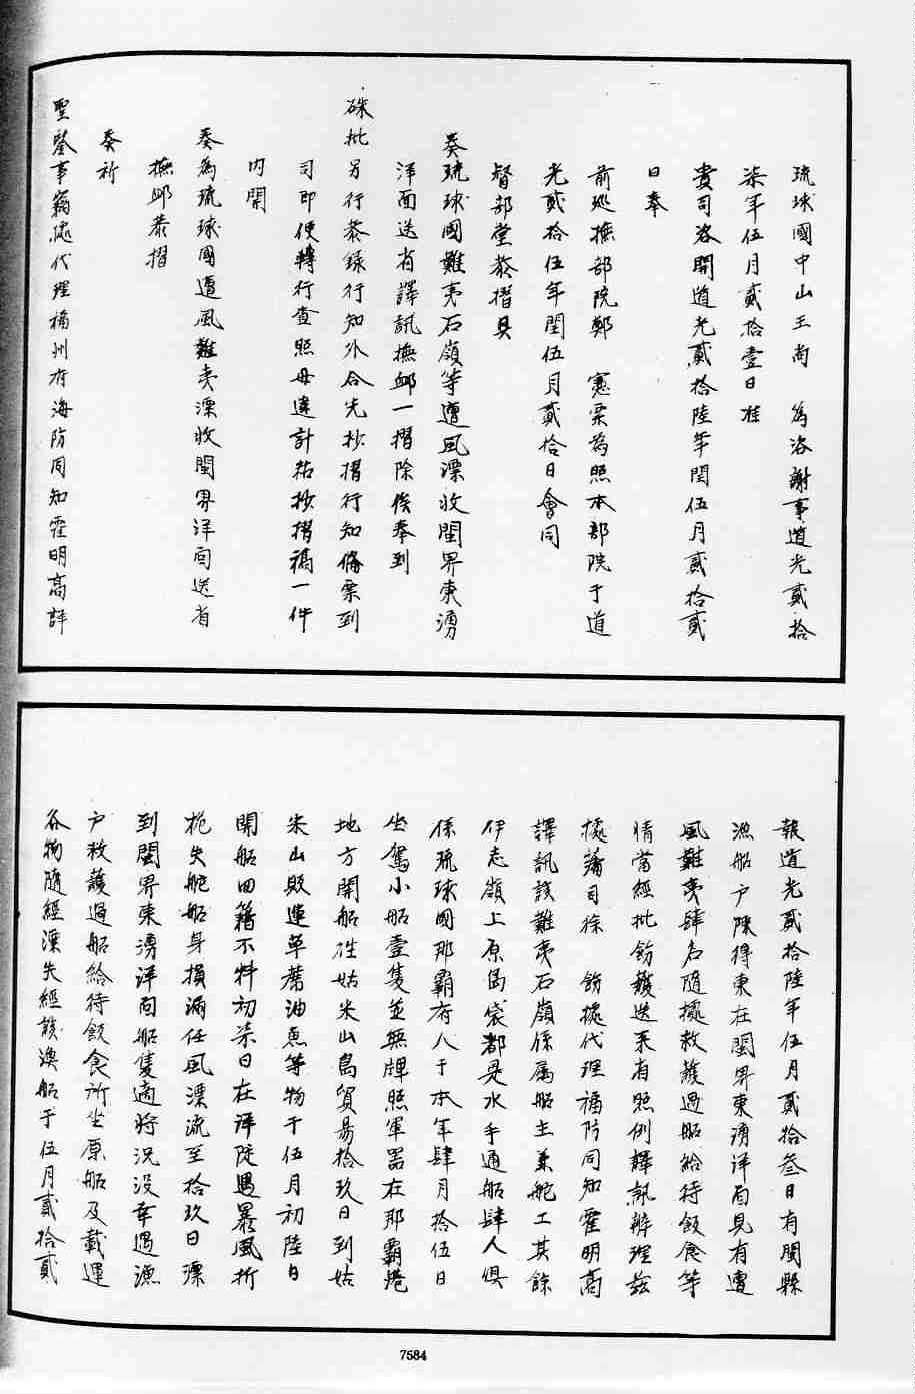 琉球國中山王尚　為咨謝事道光貳拾
柒年伍月貳拾壹日准
貴司咨開道光貳拾陸年閏伍月貳拾貳
日奉
前巡撫部院鄭　憲票為照本部院于道
光貳拾伍年閏伍月貳拾日會同
督部堂恭摺具
奏琉球國難夷石嶺等遭風漂收閩界東湧
洋面送省譯訊撫卹一摺除俟奉到
硃批另行恭錄行知外合先抄摺行知備票到
司即使轉行查照毋違計粘抄摺稿一件
內開
奏為琉球國遭風難夷漂收閩界洋面送省
撫卹恭摺
奏祈
聖鑒事竊據代理福州府海防同知霍明高詳
報道光貳拾陸年伍月貳拾叁日有閩縣
漁船戶陳得東在閩界東湧洋面見有遭
風難夷肆名隨攏救護過船給待飯食等
情當經批飭護送來省照例譯訊辦理茲
據藩司徐　飭據代理福防同知霍明高
譯訊該難夷石嶺係属船主兼舵工其餘
伊志嶺上原島袋都是水手通船肆人俱
係琉球國那霸府人于本年肆月拾伍日
坐駕小船壹隻並無牌照軍器在那霸港
地方開船往姑米山島貿易拾玖日到姑
米山販運草蓆油魚等物于伍月初陸日
開船回籍不料初柒日在洋陡遇暴風折
桅失舵船身損漏任風漂流至拾玖日漂
到閩界東湧洋面船隻適將沉沒幸遇漁
戶救護過船給待飯食所坐原船及載運
各物隨經漂失經該漁船于伍月貳拾貳
7584